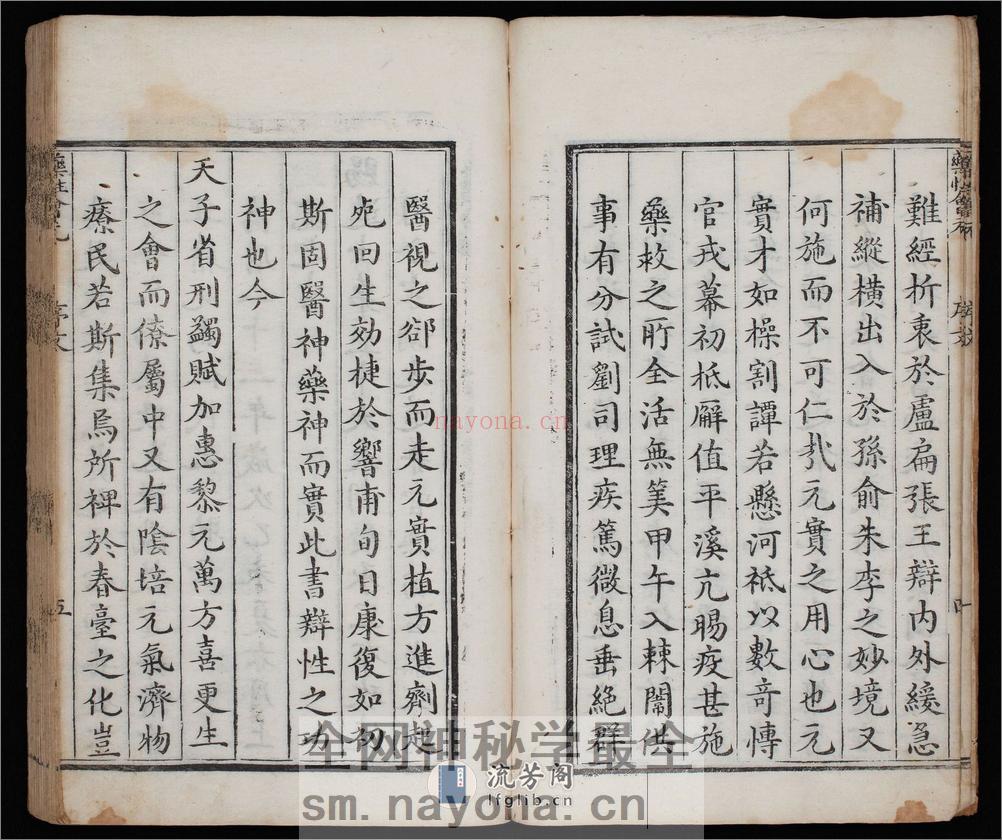 難經折衷於盧扁張王辯内外緩急
補縱橫出入於孫俞朱李之妙境又
何施而不可仁㢤元實之用心也元
實才如橾割譚若懸河祇以數竒慱
官戎幕初柢廨值平溪亢暘疫甚施
藥救之所全活無筭甲午入棘闈供
事有分試劉司理疾篤微息垂絶群
醫視之郤步而走元實植方進劑起
死回生効㨗於響甫旬日康復如初
斯固醫神藥神而實此書辯性之功
神也今
天子省刑蠲賦加惠黎元萬方喜更生
之會而僚屬中又有陰培元氣濟物
療民若斯集焉所裨於春臺之化豈
五
nayona.cn
全网神秘学最全
流芳阁
lfglib.cn
sm.nayona.cn